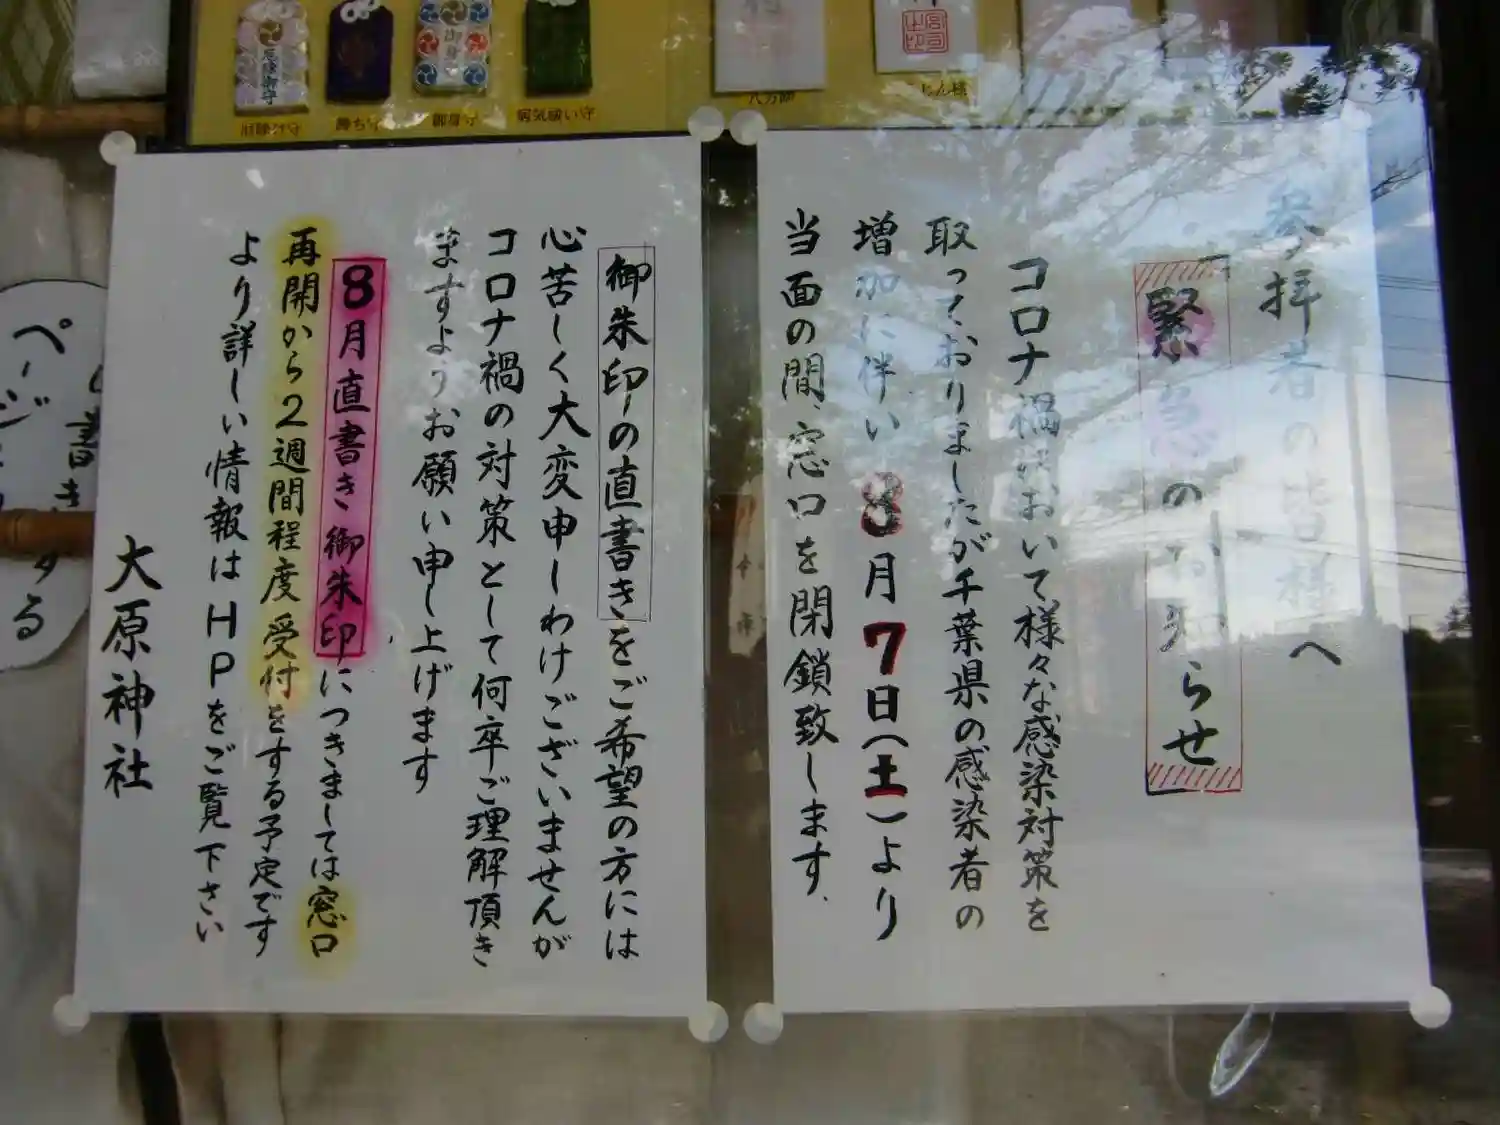 病気祓い守
御身守
勝ち守
参拝者の皆様へ
緊急のお知らせ
コロナ禍において様々な感染対策を
取っておりましたが千葉県の感染者の
増加に伴い8月7日(土)より
当面の間、窓口を閉鎖致します.
御朱印の直書きをご希望の方には
心苦しく大変申しわけございませんが
コロナ禍の対策として何卒ご理解頂き
ますようお願い申し上げます
8月直書き御朱印につきましては窓口
再開から2週間程度受付をする予定です
より詳しい情報はHPをご覧下さい
大原神社